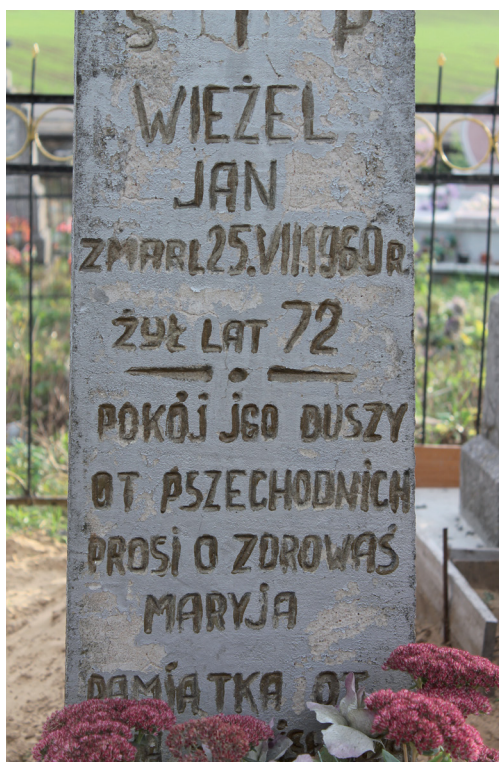 Ś I P
WIEŻEL
JAN
ZMARL 25.VII.1960 R.
ŻYŁ LAT 72
POKÓJ JGO DUSZY
OT PSZECHODNICH
PROSI O ZDROWAŚ
MARYJA
PAMIĄTKA OT